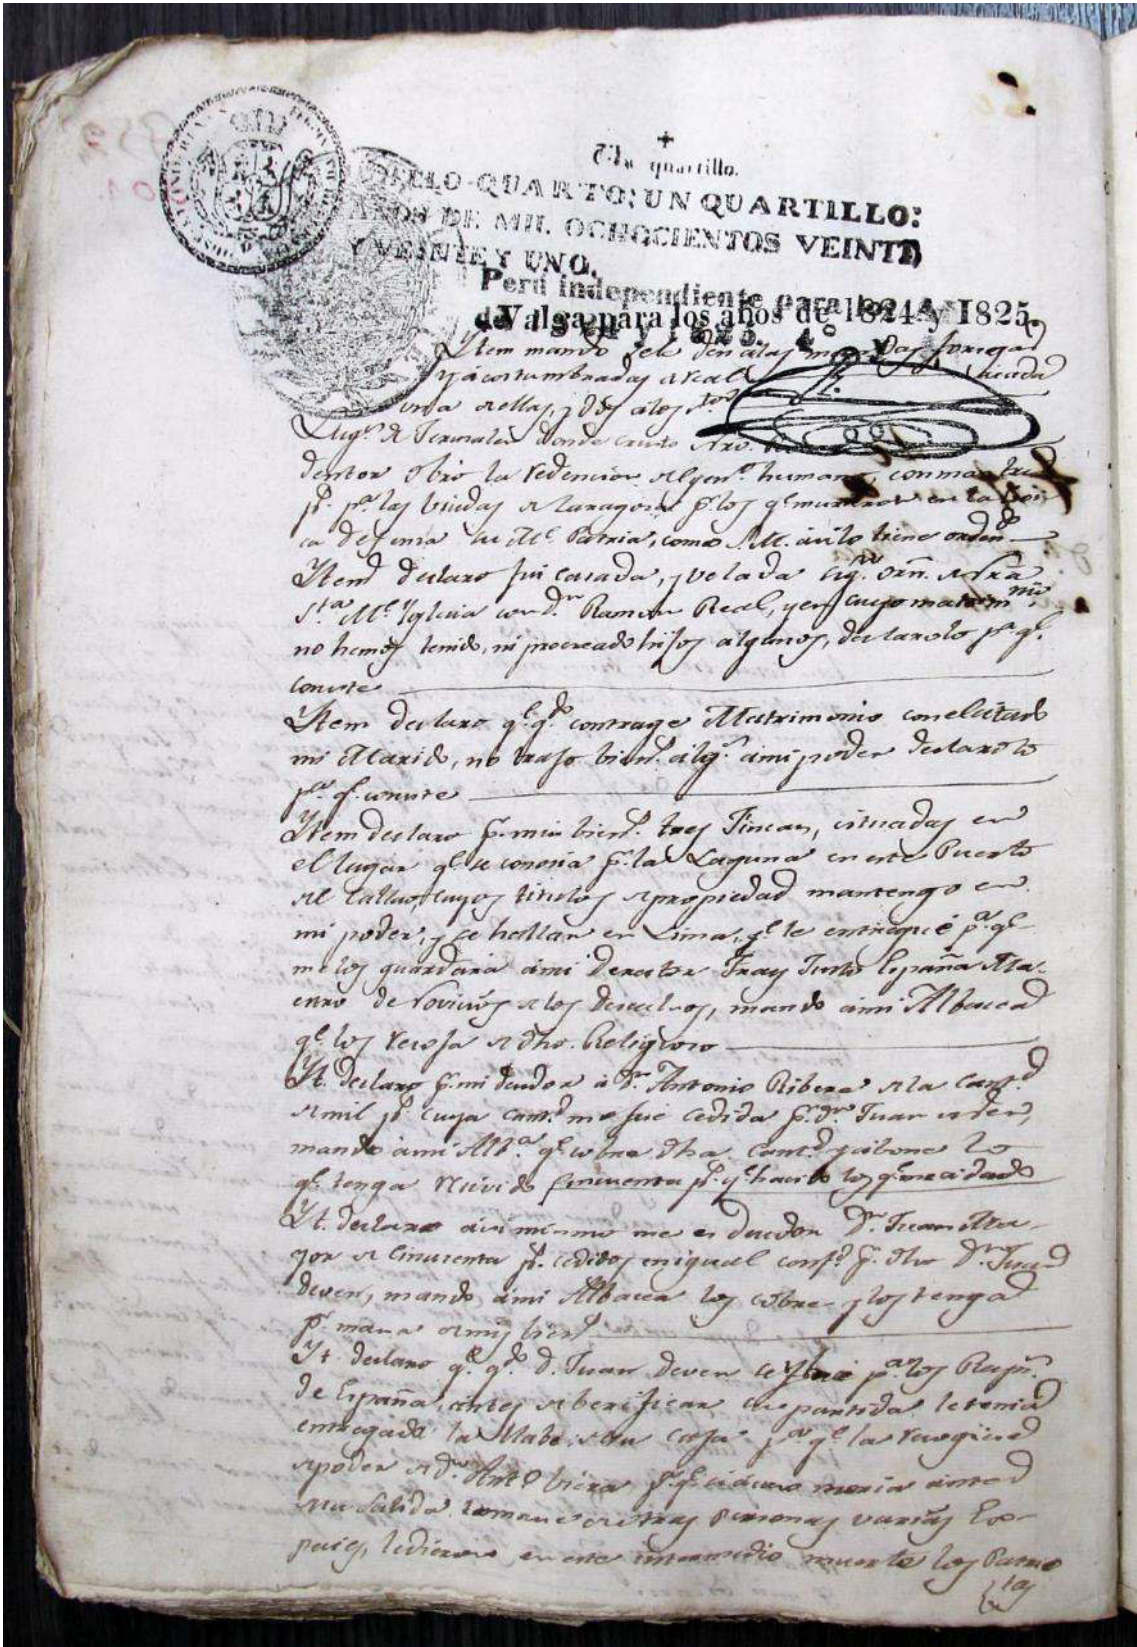 Un quartillo.
SELLO-QUARTO; UN QUARTILLO:
AÑOS DE MIL OCHOCIENTOS VEINTE
Y VEINTE Y UNO.
Perú independiente para los
Valga para los años de 1824 y 1825.
Ytem mando se le den a las mandas forzosas
y acostumbradas a real cada
una de ellas, y dos a los Stos
Lugs. de Jerusalen donde cristo Nro.
dentor obró la redencion del gen.o humano, con mas tres
ps. pa. las biudas de Saragosa pr. los qe. murieron en la
ca defensa su Me. Patria, como S.M. asi lo tiene orden
Ytem declaro fui casada, y velada sigu. orn. de Nra
Sta. Me. Yglecia con Dn. Ramon Real, y en cuyo matrim nio
no hemos tenido, ni procreado hijos algunos, declarolo pa. qe.
conste
Ytem declaro qe. qdo. contrage Matrimonio con el citado
mi Marido, no trajo biens. algs. a mi poder declarolo
pa. qe. conste
Ytem declaro pr. mis biens. tres Fincas, cituadas en
el lugar qe. se conosia pr. la Laguna en este Puerto
del Callao, cuyos titulos de propiedad mantengo en
mi poder, y se hallan en Lima, qe. le entregué pa. qe
me los guardara a mi Director Fray Justo España Ma-
estro de Novicios de los Descalsos, mando a mi Albacea
qe. los recoja de dho. Religioso
Yt. declaro pr. mi deudor a Dn. Antonio Ribera de la cantd.
de mil ps. cuya cantd. me fue cedida pr. Dn. Juan
mando a mi Alba. qe. cobre dha. cantd. y abone lo
qe. tenga recivido sincuenta ps. qe. hasido los qe. me a dado
Yt. declaro asi mismo me es deudor Dn. Juan Ma-
yor de cincuenta ps. cedidos en igual conf. pr. dho Dn. Juan
deven, mando a mi Albacea los cobre y los tenga
pr. masa de mis biens
Yt. declaro qe. qdo. D. Juan deven se pa. los Reyn.
de España, antes de berificar su partida le tenia
entregada la llabe de su casa pa. qe. la recogiese
de poder de Dn. Anto. pr. qe. si acaso moria antes
de su salida tomase otras personas varias
peies, le dieron en este intermedio muerte los Patrio
tas